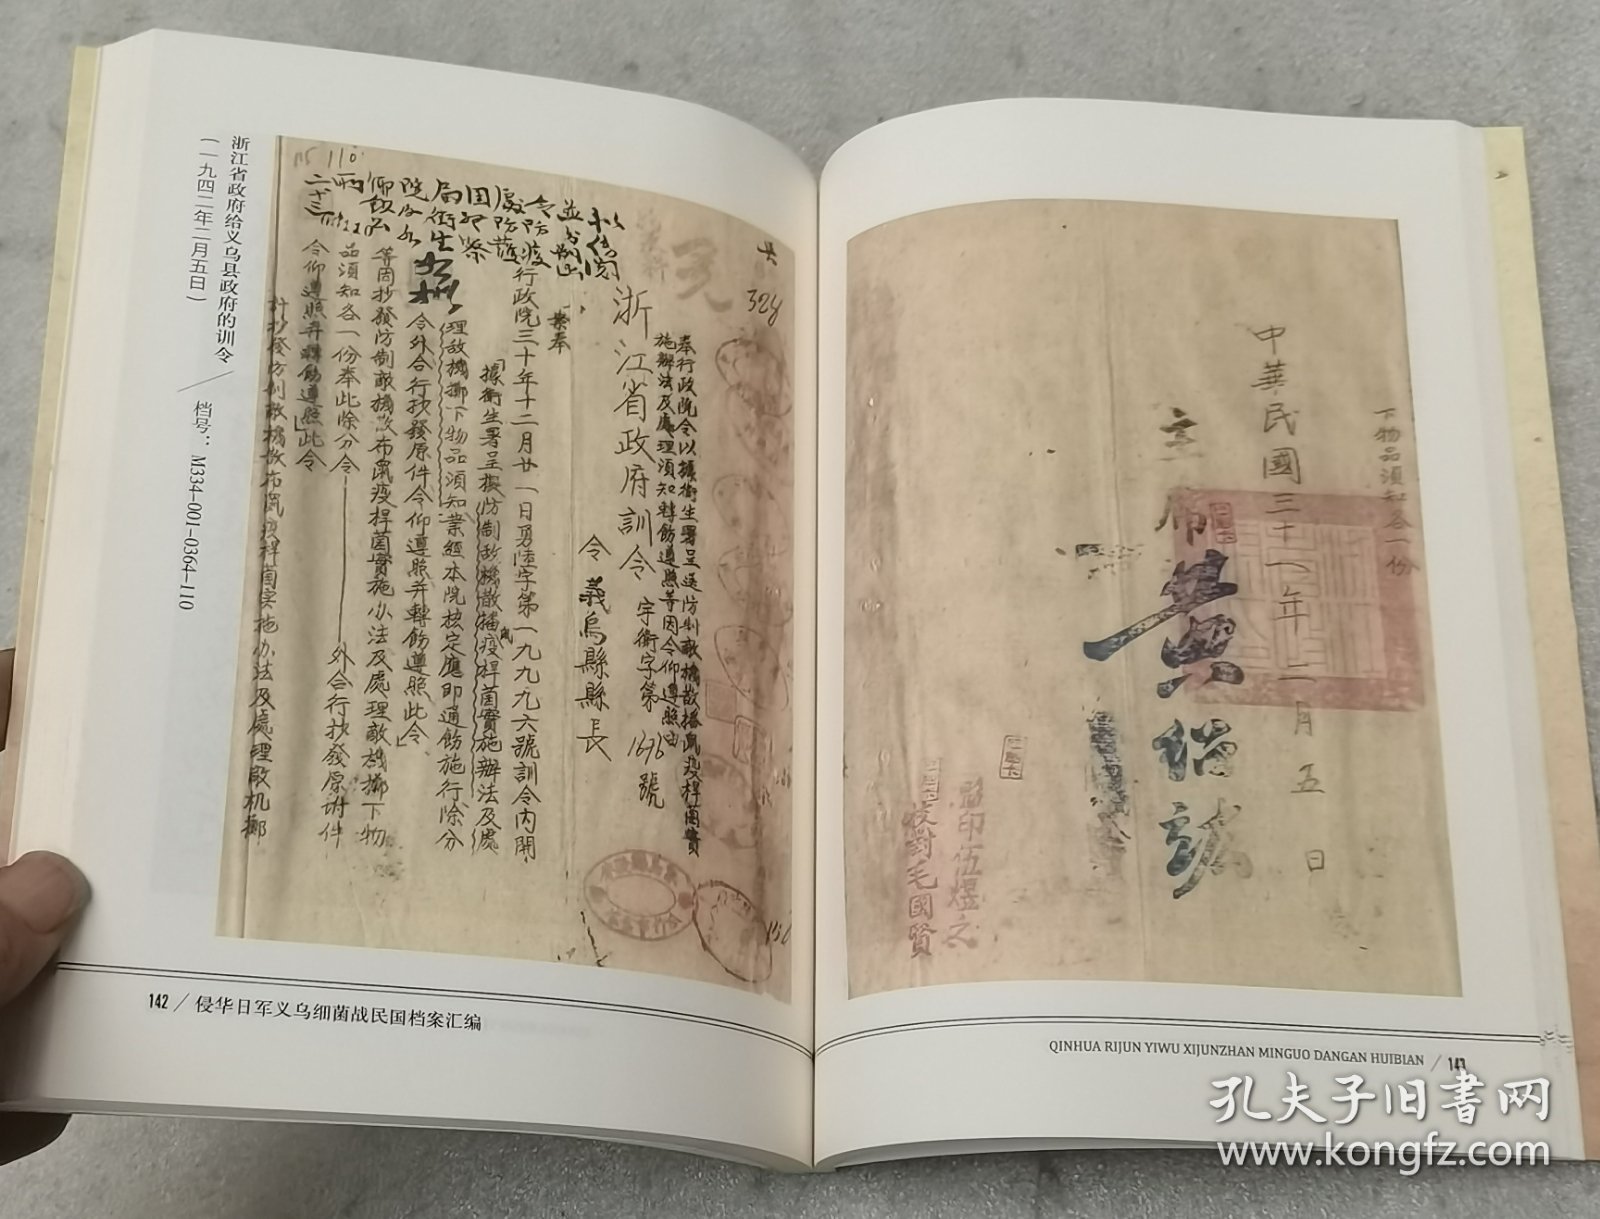 浙江省政府给义乌县政府的训令
(一九四二年二月五日)
档号：M334-001-0364-110
110
328
奉行政院令以據衛生署呈送防制敵機散播鼠疫桿菌實
施辦法及處理須知轉飭遵照等因令仰遵照由
浙江省政府訓令
字衛字第1696號
令義烏縣縣長
案奉
行政院三十年十二月廿一日勇陸字第一九九九六號訓令內開
「據衛生署呈擬防制敵機散播鼠疫桿菌實施辦法及處
理敵機擲下物品須知業經本院核定應即通飭施行除分
令外合行抄發原件令仰遵照并轉飭遵照此令」
等因抄發防制敵機散布鼠疫桿菌實施办法及處理敵機擲下物
品須知各一份奉此除分令外合行抄發原附件
令仰遵照并轉飭遵照此令
計抄發防制敵機散布鼠疫桿菌实施办法及處理敵机擲
下物品須知各一份
中華民國三十一年二月五日
主席黃紹竑
監印伍煜之
校對毛國賢
142 / 侵华日军义乌细菌战民国档案汇编
QINHUA RIJUN YIWU XIJUNZHAN MINGUO DANGAN HUIBIAN / 143
孔夫子旧书网
www.kongfz.com